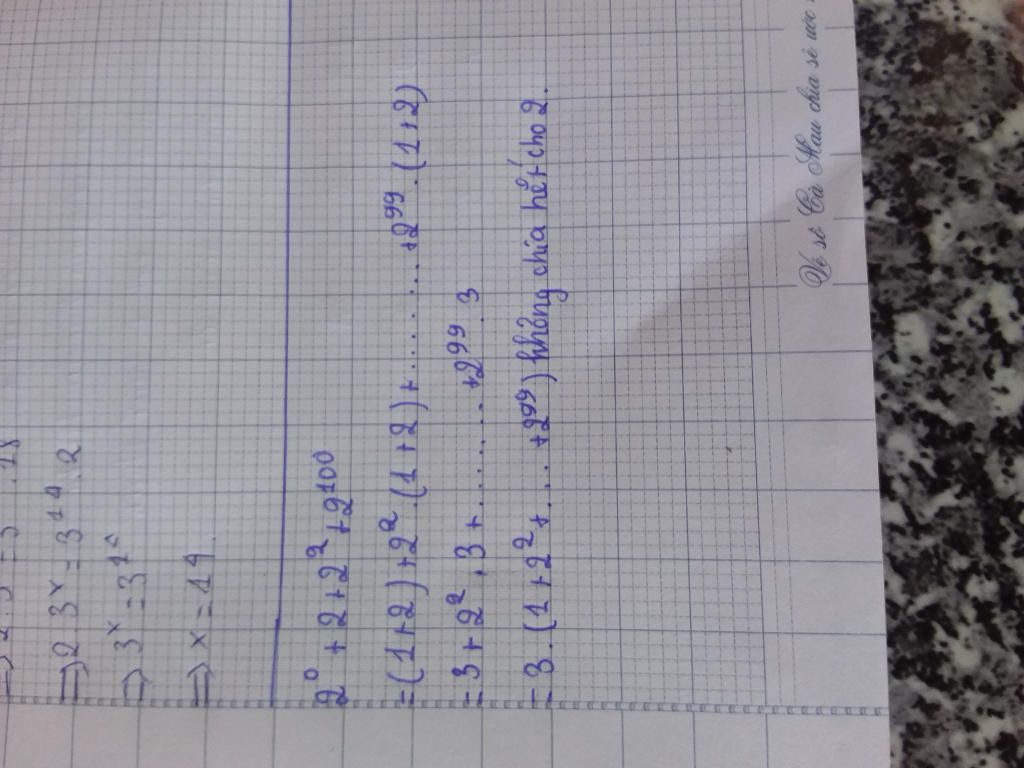 ⇒ 2 3ˣ = 3¹⁴ . 2
⇒ 3ˣ = 3
⇒ x = 14
2⁰ + 2 + 2² + 2¹⁰⁰
= (1+2) + 2² . (1+2) + ........ + 2⁹⁹ . (1+2)
= 3 + 2² . 3 + ........ + 2⁹⁹ . 3
= 3 . (1 + 2² + .... + 2⁹⁹) không chia hết cho 2.
Vé số Cà Mau chia sẻ ước